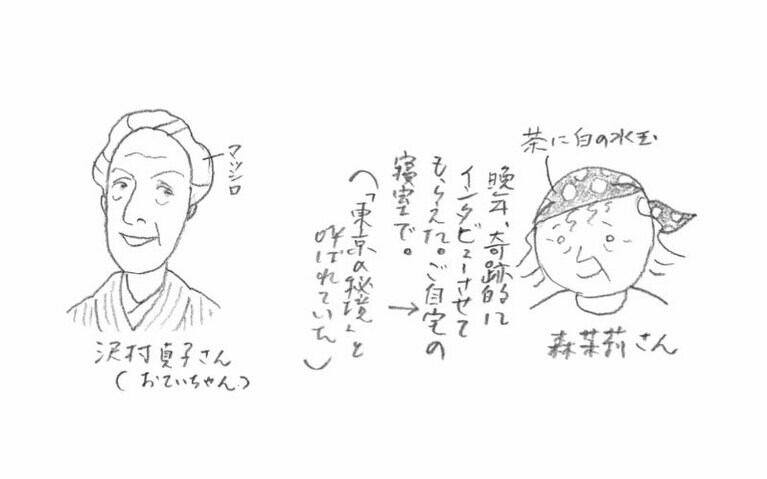 マッシロ
沢村貞子さん
(おていちゃん)
茶に白の水玉
晩年、奇跡的に
インタビューさせて
もらえた。ご自宅の
寝室で。
(「東京の秘境」と
呼ばれていた)
森茉莉さん